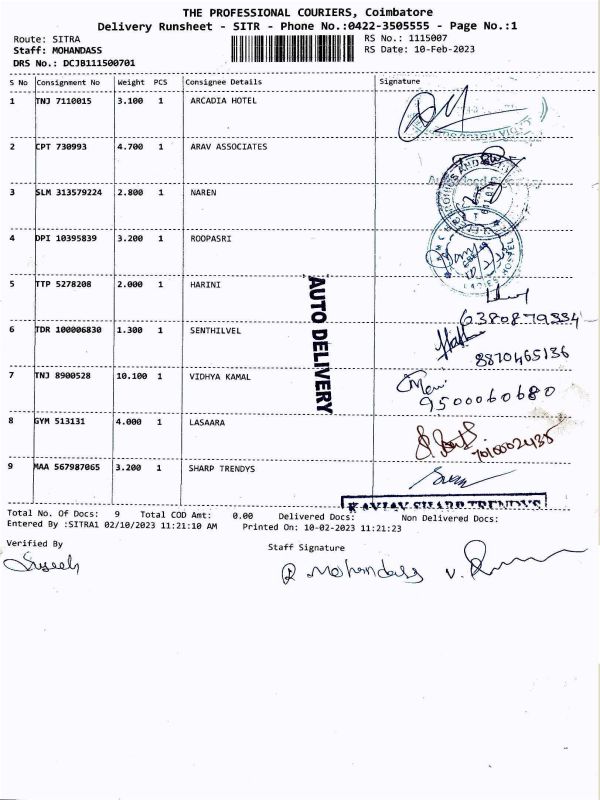 THE PROFESSIONAL COURIERS, Coimbatore
Delivery Runsheet - SITR - Phone No.:0422-3505555 - Page No.:1
Route: SITRA
RS No.: 1115007
Staff: MOHANDASS
RS Date: 10-Feb-2023
DRS No.: DCJB111500701
S No Consignment No Weight PCS Consignee Details Signature
1 TNJ 7110015 3.100 1 ARCADIA HOTEL
2 CPT 730993 4.700 1 ARAV ASSOCIATES
3 SLM 313579224 2.800 1 NAREN
4 DPI 10395839 3.200 1 ROOPASRI
5 TTP 5278208 2.000 1 HARINI
6380879334
6 TDR 100006830 1.300 1 SENTHILVEL
8870465136
7 TNJ 8900528 10.100 1 VIDHYA KAMAL
9500060680
8 GYM 513131 4.000 1 LASAARA
7010002435
9 MAA 567987065 3.200 1 SHARP TRENDYS
AUTO DELIVERY
SHARP TRENDYS
Total No. Of Docs: 9 Total COD Amt: 0.00 Delivered Docs: Non Delivered Docs:
Entered By :SITRA1 02/10/2023 11:21:10 AM Printed On: 10-02-2023 11:21:23
Verified By
Staff Signature
Suseeh
R Mohandass